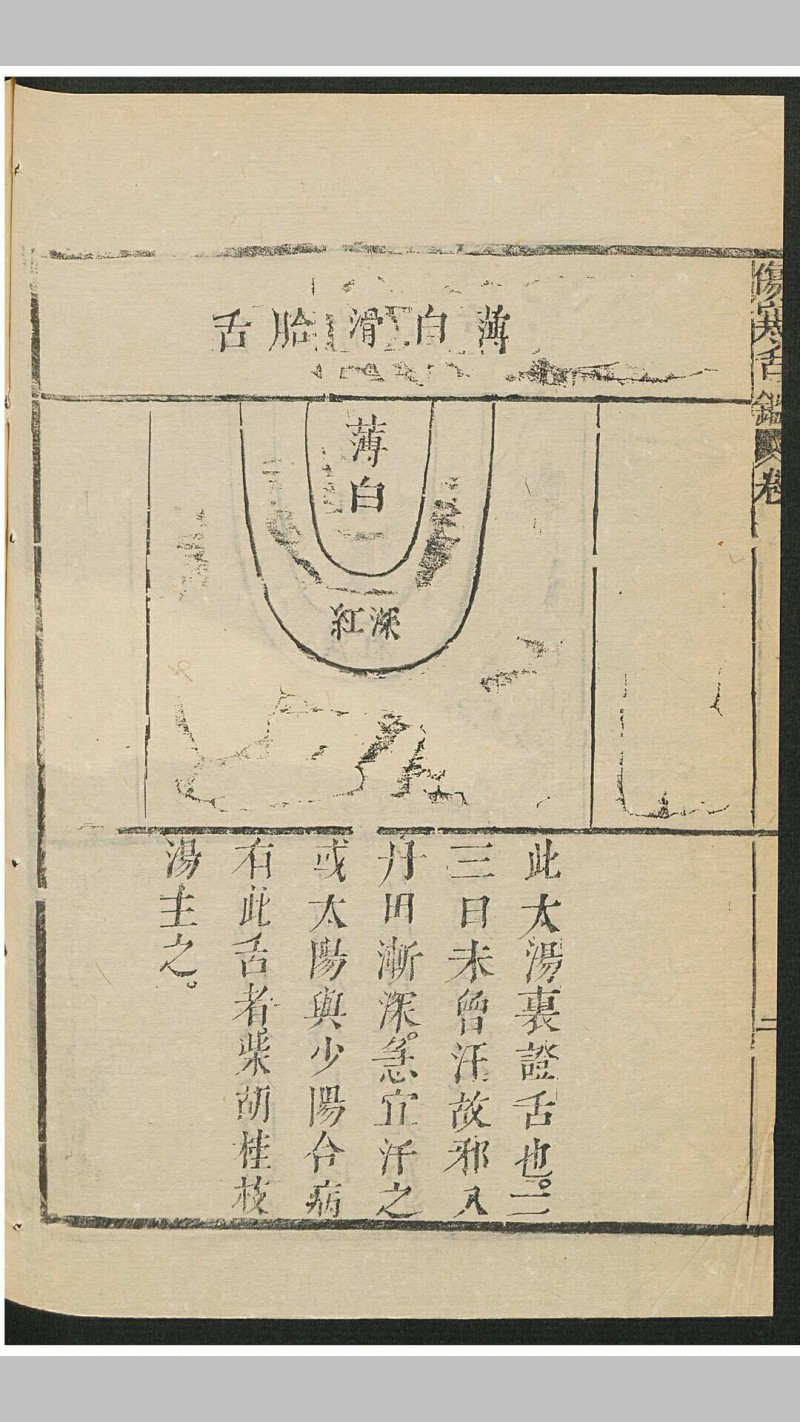 傷寒舌鑑 卷
二
薄白滑胎舌
薄白
深紅
此太湯裏證舌也。二
三日未曾汗故邪入
丹田漸深。急宜汗之
或太陽與少陽合病
有此舌者柴胡桂枝
湯主之。